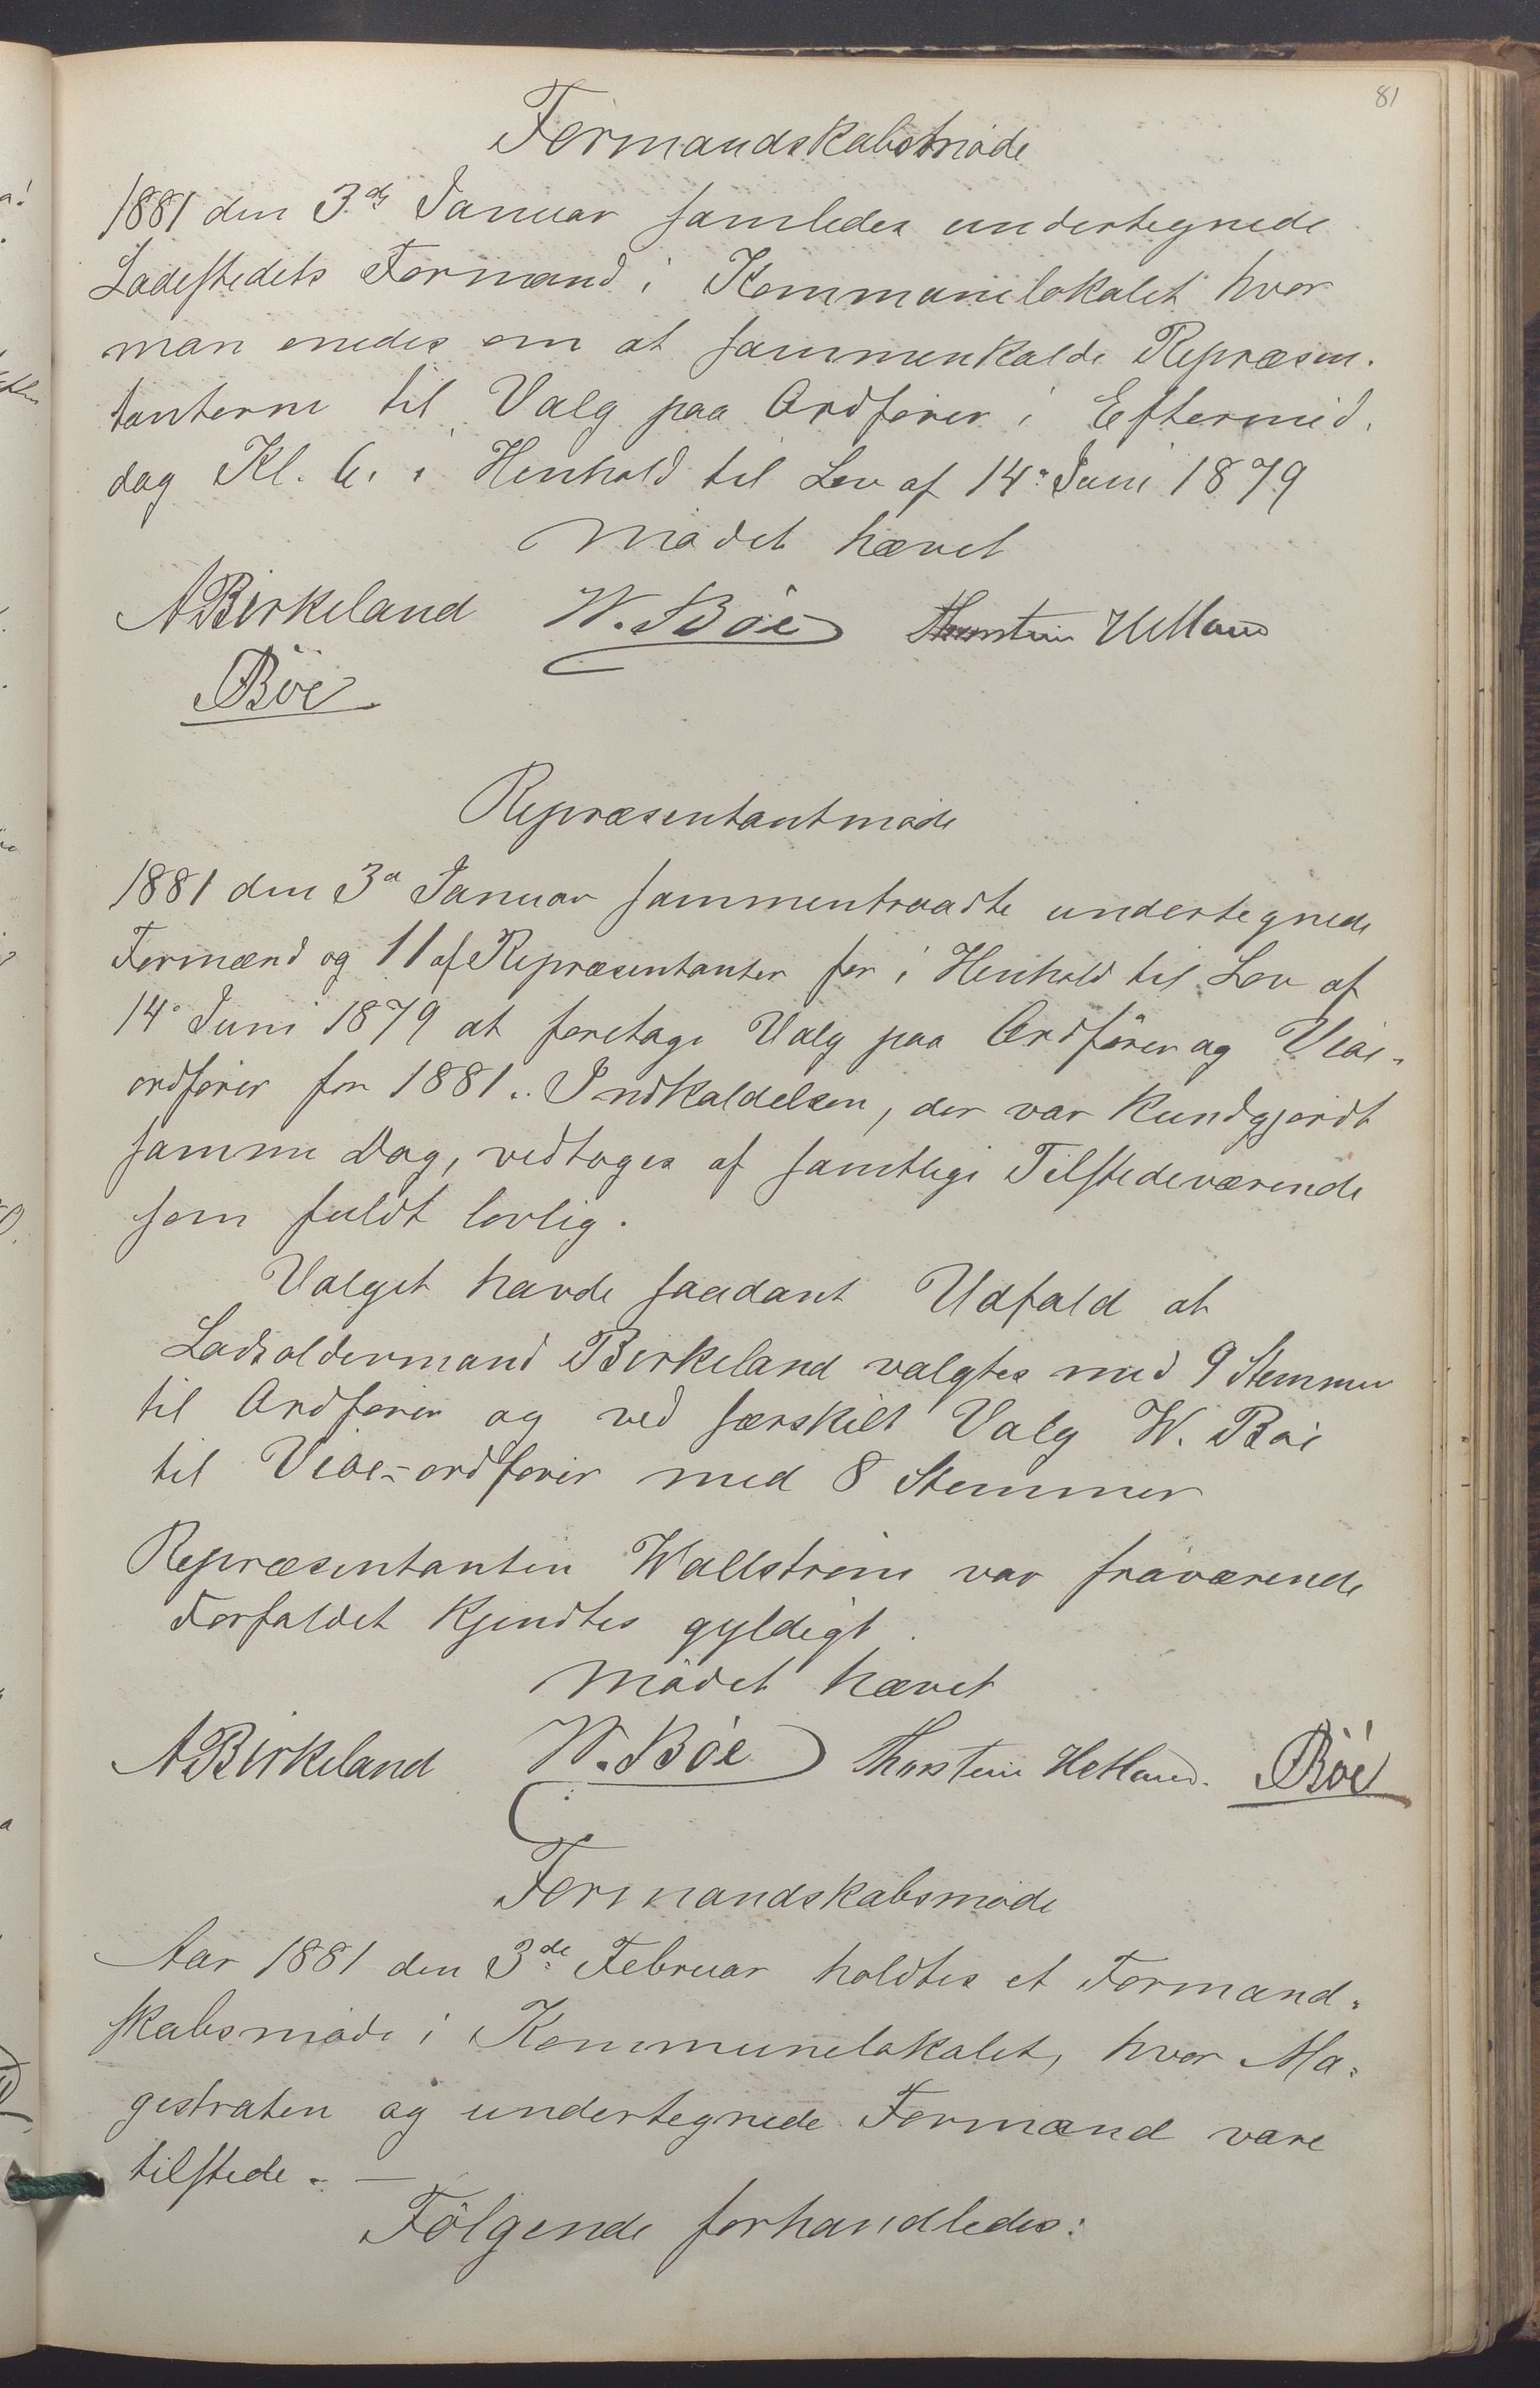 81
Formandskabsmøde
1881 den 3de Januar samledes undertegnede
Ladestedets Formænd i Kommunelokalet hvor
man enedes om at sammenkalde Repræsen-
tanterne til Valg paa Ordfører i Eftermid.
dag Kl. 6. i Henhold til Lov af 14de Juni 1879
Mødet hævet
ABirkeland W. Böe Thorstein Hetland
Böe
Repræsentantmøde
1881 den 3d Januar sammentraadte undertegnede
Formænd og 11 af Repræsentanter for i Henhold til Lov af
14de Juni 1879 at foretage Valg paa Ordfører og Vice-
ordfører for 1881. Indkaldelsen, der var kundgjordt
samme Dag, vedtoges af samtlige Tilstedeværende
som fuldt lovlig.
Valget havde saadant Udfald at
Ladsoldermand Birkeland valgtes med 9 Stemmer
til Ordfører og ved særskilt Valg W. Böe
til Vice-ordfører med 8 Stemmer
Repræsentanten Wallstrøm var fraværende
Forfaldet kjendtes gyldigt.
Mødet hævet
ABirkeland W. Böe Thorstein Hetland. Böe
Formandskabsmøde
Aar 1881 den 3de Februar holdtes et Formand-
skabsmøde i Kommunelokalet, hvor Ma-
gestraten og undertegnede Formænd vare
tilstede. —
Følgende forhandledes: